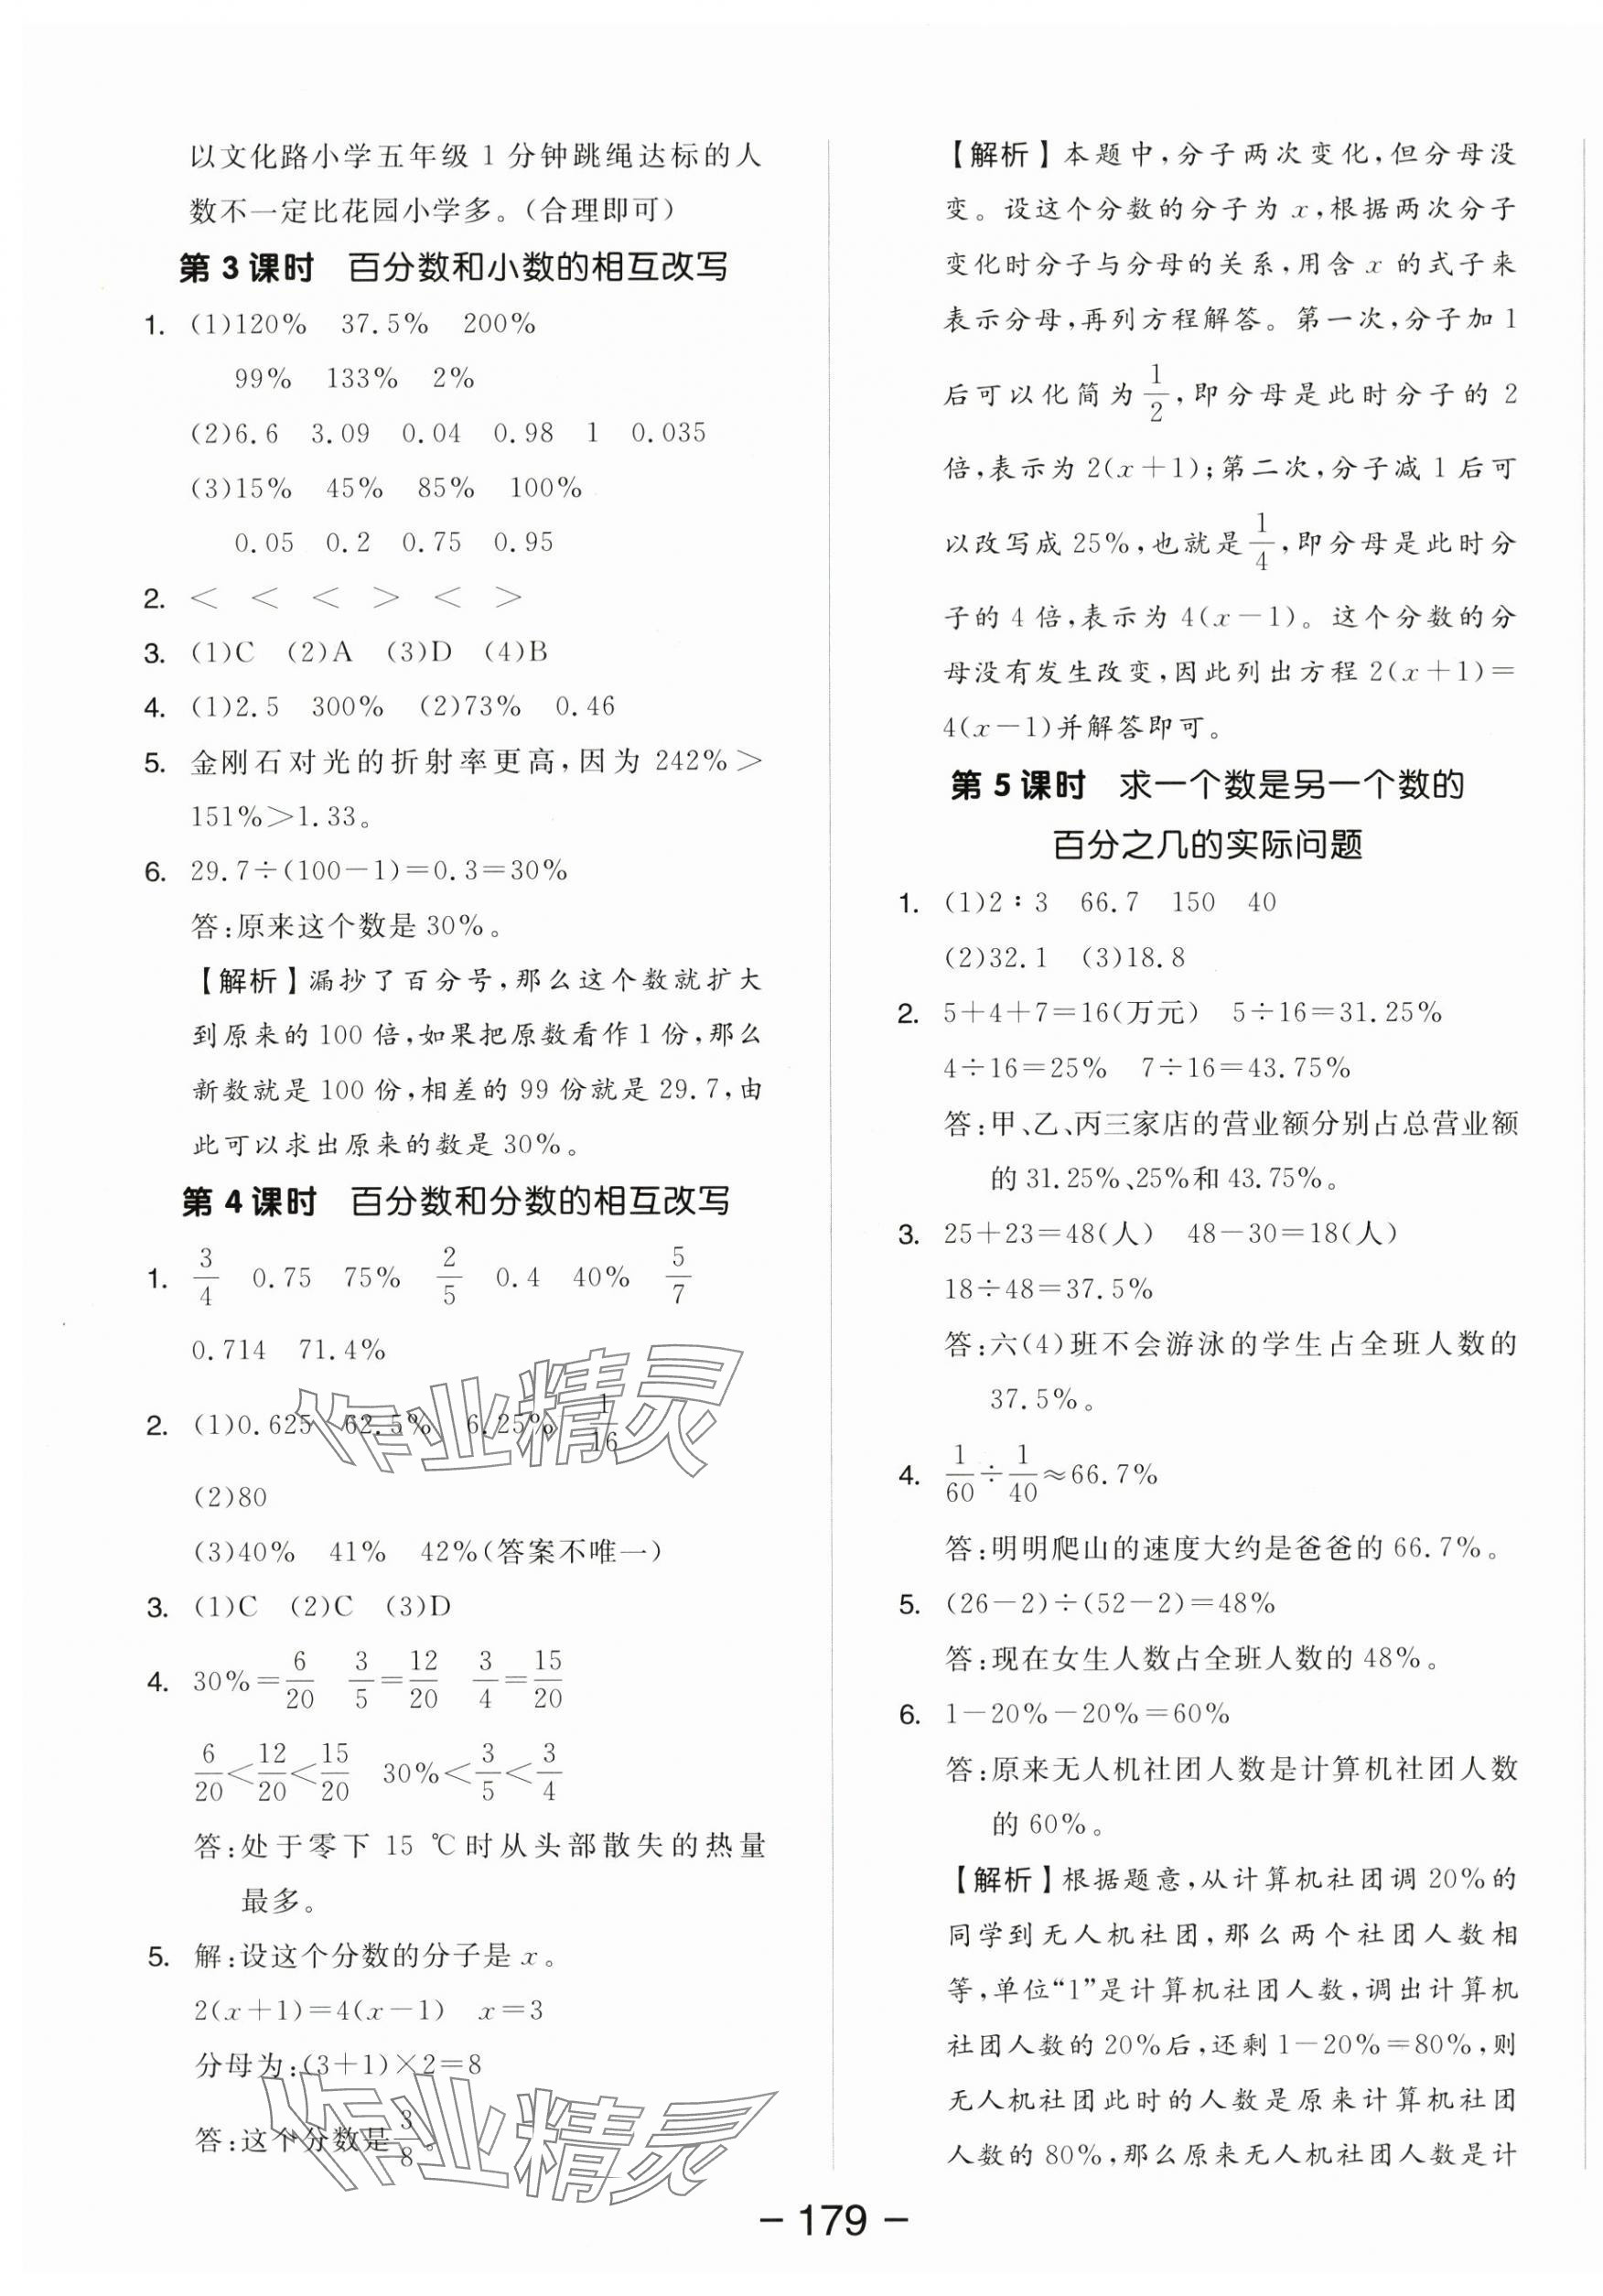 以文化路小学五年级 1 分钟跳绳达标的人
数不一定比花园小学多。(合理即可)
第 3 课时　百分数和小数的相互改写
1. (1)120%　37.5%　200%
99%　133%　2%
(2)6.6　3.09　0.04　0.98　1　0.035
(3)15%　45%　85%　100%
0.05　0.2　0.75　0.95
2. <　<　<　>　<　>
3. (1)C　(2)A　(3)D　(4)B
4. (1)2.5　300%　(2)73%　0.46
5. 金刚石对光的折射率更高,因为 242%>
151%>1.33。
6. 29.7÷(100-1)=0.3=30%
答:原来这个数是 30%。
【解析】漏抄了百分号,那么这个数就扩大
到原来的 100 倍,如果把原数看作 1 份,那么
新数就是 100 份,相差的 99 份就是 29.7,由
此可以求出原来的数是 30%。
第 4 课时　百分数和分数的相互改写
1. 3/4　0.75　75%　2/5　0.4　40%　5/7
0.714　71.4%
2. (1)0.625　62.5%　6.25%　1/16
(2)80
(3)40%　41%　42%(答案不唯一)
3. (1)C　(2)C　(3)D
4. 30%=6/20　3/5=12/20　3/4=15/20
6/20<12/20<15/20　30%<3/5<3/4
答:处于零下 15 ℃时从头部散失的热量
最多。
5. 解:设这个分数的分子是 x。
2(x+1)=4(x-1)　x=3
分母为:(3+1)×2=8
答:这个分数是 3/8。
【解析】本题中,分子两次变化,但分母没
变。设这个分数的分子为 x,根据两次分子
变化时分子与分母的关系,用含 x 的式子来
表示分母,再列方程解答。第一次,分子加 1
后可以化简为 1/2,即分母是此时分子的 2
倍,表示为 2(x+1);第二次,分子减 1 后可
以改写成 25%,也就是 1/4,即分母是此时分
子的 4 倍,表示为 4(x-1)。这个分数的分
母没有发生改变,因此列出方程 2(x+1)=
4(x-1)并解答即可。
第 5 课时　求一个数是另一个数的
百分之几的实际问题
1. (1)2∶3　66.7　150　40
(2)32.1　(3)18.8
2. 5+4+7=16(万元)　5÷16=31.25%
4÷16=25%　7÷16=43.75%
答:甲、乙、丙三家店的营业额分别占总营业额
的 31.25%、25%和 43.75%。
3. 25+23=48(人)　48-30=18(人)
18÷48=37.5%
答:六(4)班不会游泳的学生占全班人数的
37.5%。
4. 1/60÷1/40≈66.7%
答:明明爬山的速度大约是爸爸的 66.7%。
5. (26-2)÷(52-2)=48%
答:现在女生人数占全班人数的 48%。
6. 1-20%-20%=60%
答:原来无人机社团人数是计算机社团人数
的 60%。
【解析】根据题意,从计算机社团调 20%的
同学到无人机社团,那么两个社团人数相
等,单位“1”是计算机社团人数,调出计算机
社团人数的 20%后,还剩 1-20%=80%,则
无人机社团此时的人数是原来计算机社团
人数的 80%,那么原来无人机社团人数是计
作业精灵
作业精灵
- 179 -